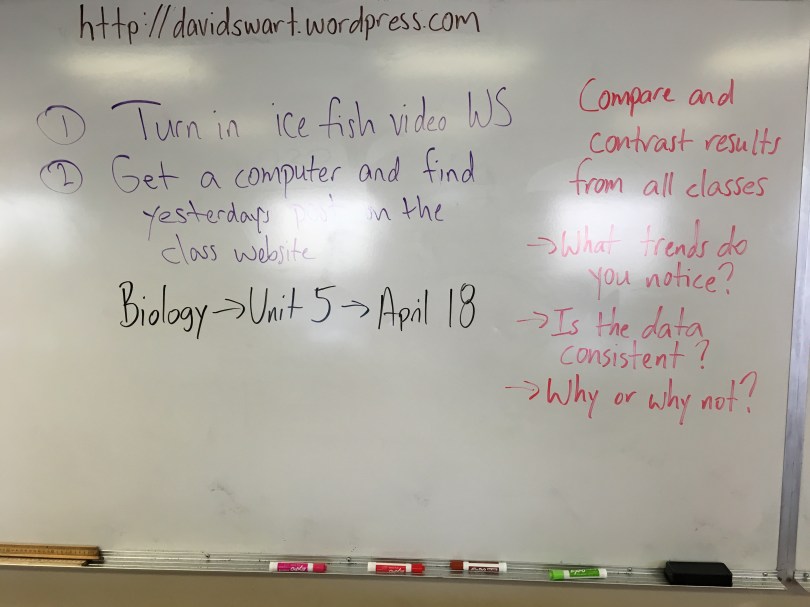 http://davidswart.wordpress.com
1 Turn in ice fish video WS
2 Get a computer and find
yesterdays on the
class website
Biology → Unit 5 → April 18
Compare and
contrast results
from all classes
→ What trends do
you notice?
→ Is the data
consistent?
→ Why or why not?